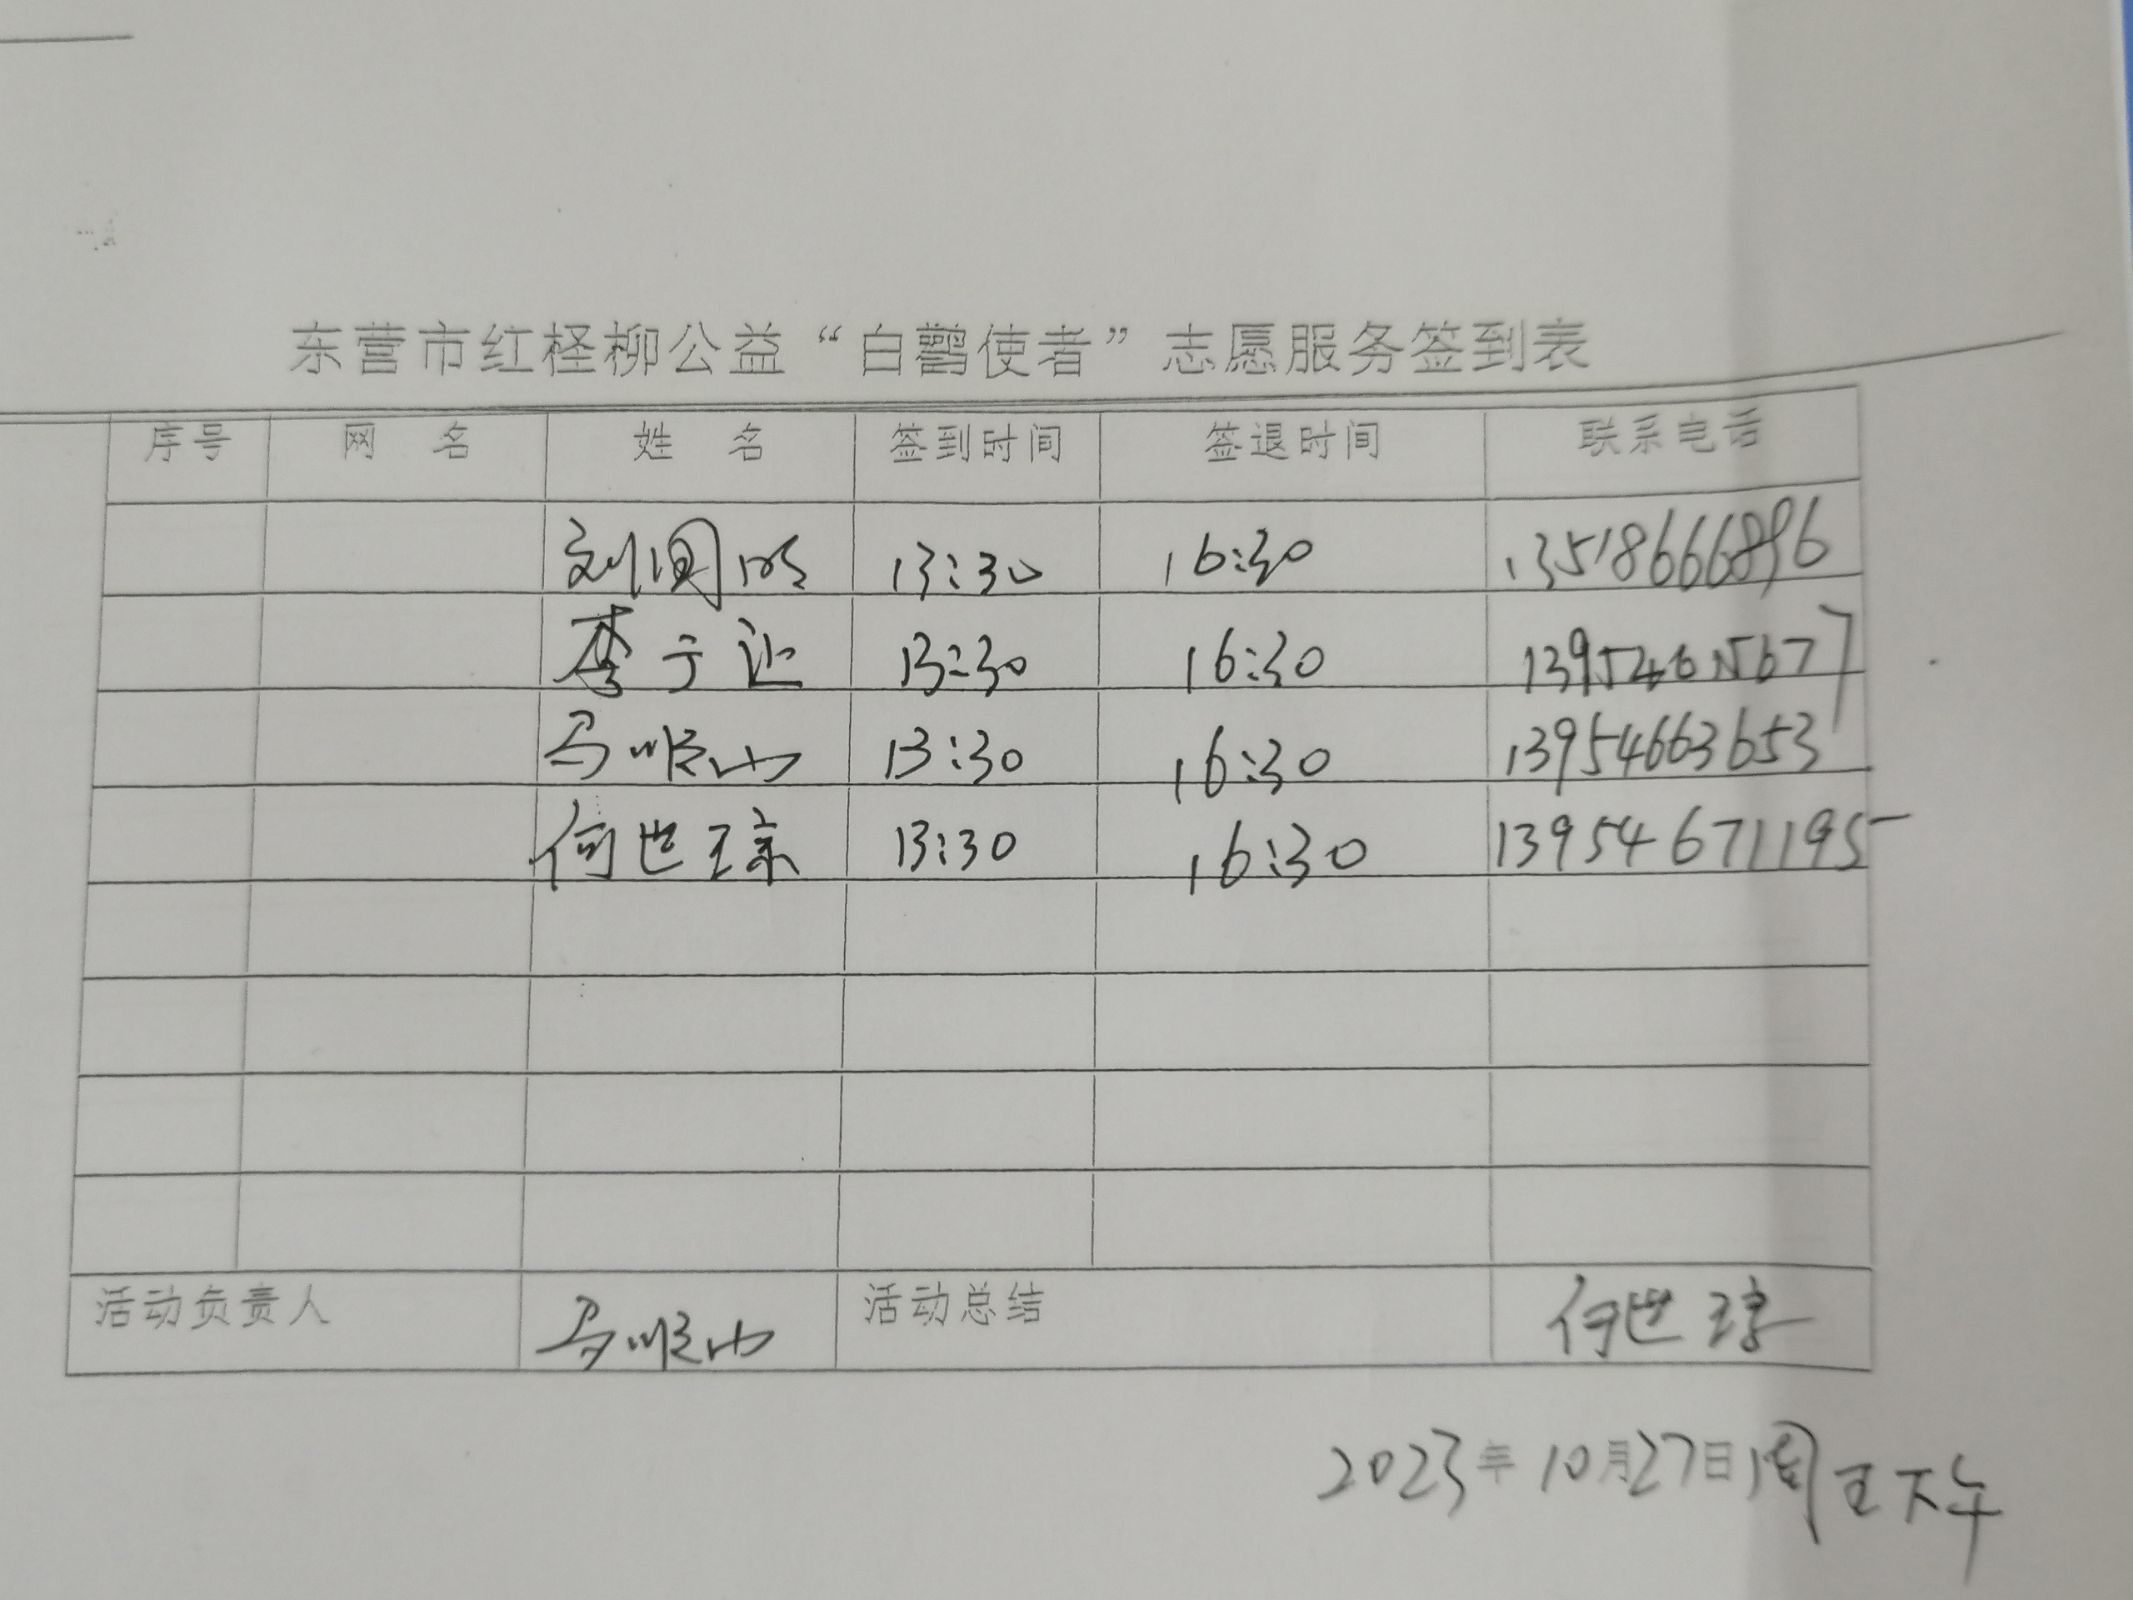 东营市红柽柳公益“白鹳使者”志愿服务签到表
序号 网 名 姓 名 签到时间 签退时间 联系电话
刘国明 13:30 16:30 13518666896
李于让 13:30 16:30
马顺山 13:30 16:30 13954663653
何世琼 13:30 16:30 13954671195
活动负责人 马顺山 活动总结 何世琼
2023年10月27日周五下午